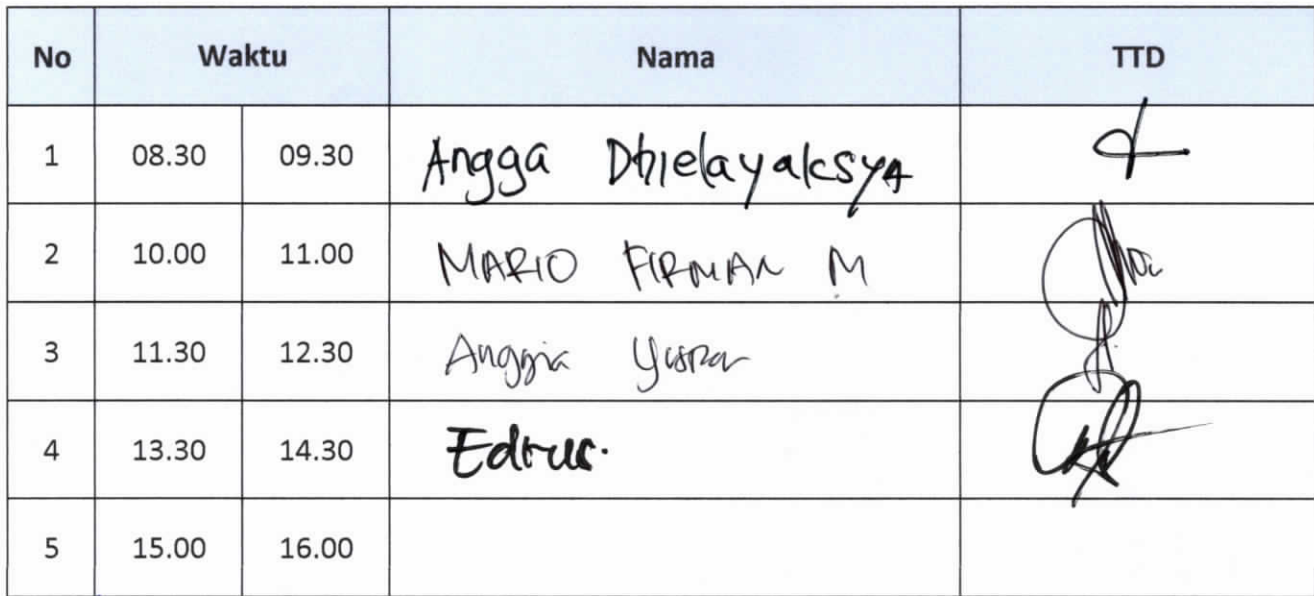 No Waktu Nama TTD
1 08.30 09.30 Angga Dhielayaksya
2 10.00 11.00 MARIO FIRMAN M
3 11.30 12.30 Anggia
4 13.30 14.30
5 15.00 16.00